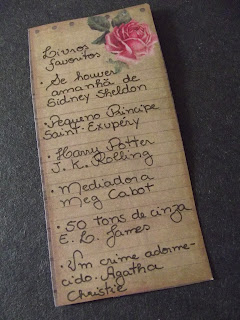 Livros
favoritos
• Se houver
amanhã de
Sidney Sheldon
• Pequeno Príncipe
Saint. Exupéry
• Harry Potter
J. K. Rolling
• Mediadora
Meg Cabot
• 50 tons de cinza
E. L. James
• Um crime adorme-
cido. Agatha
Christie